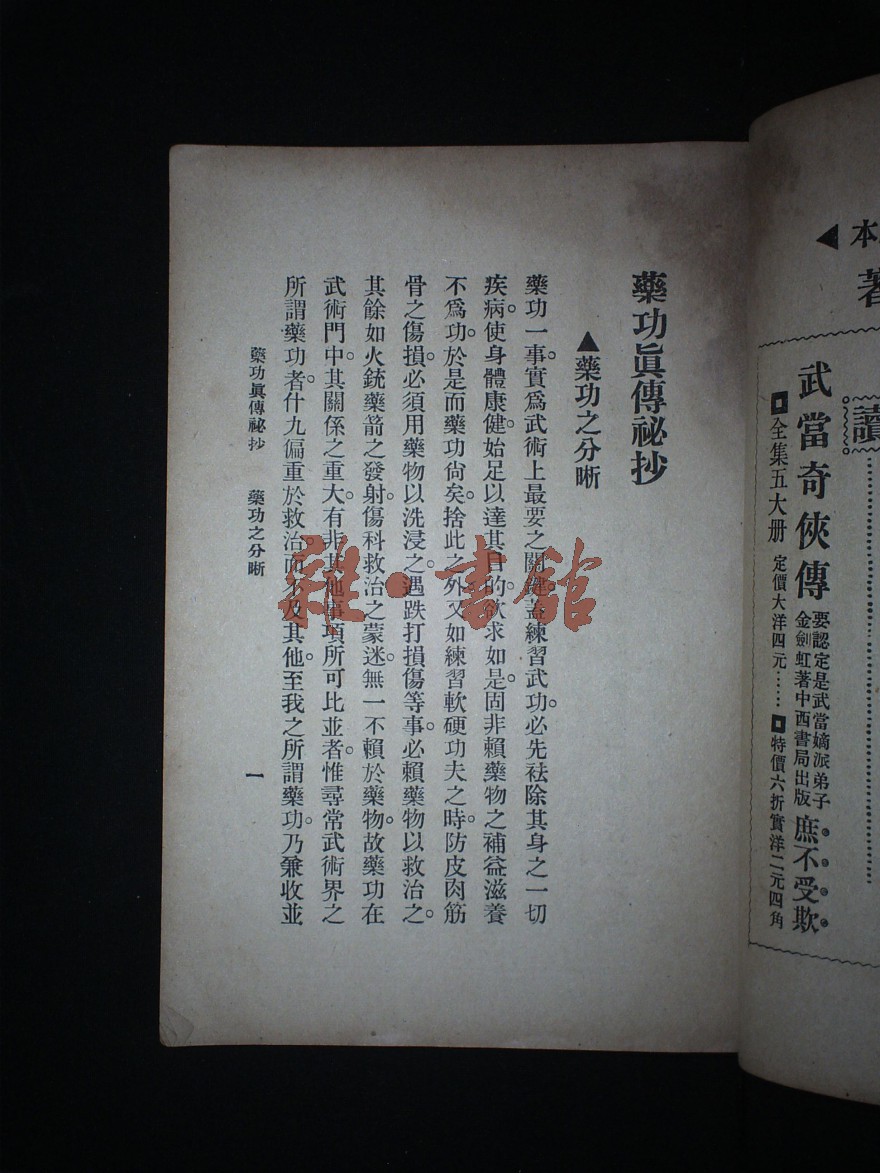 本
著
讀
武當奇俠傳
要認定是武當嫡派弟子
金劍虹著中西書局出版
庶不受欺
全集五大册 定價大洋四元……特價六折實洋二元四角
藥功眞傳祕抄
▲藥功之分晰
藥功一事實爲武術上最要之關鍵蓋練習武功。必先祛除其身之一切
疾病。使身體康健。始足以達其目的。欲求如是。固非賴藥物之補益滋養
不爲功。於是而藥功尙矣。捨此之外。又如練習軟硬功夫之時。防皮肉筋
骨之傷損。必須用藥物以洗浸之。遇跌打損傷等事。必賴藥物以救治之。
其餘如火銃藥箭之發射。傷科救治之蒙迷。無一不賴於藥物。故藥功在
武術門中。其關係之重大。有非其他事項所可比並者。惟尋常武術界之
所謂藥功者。什九偏重於救治。而不及其他。至我之所謂藥功。乃兼收並
藥功眞傳祕抄 藥功之分晰
一
雜·書館